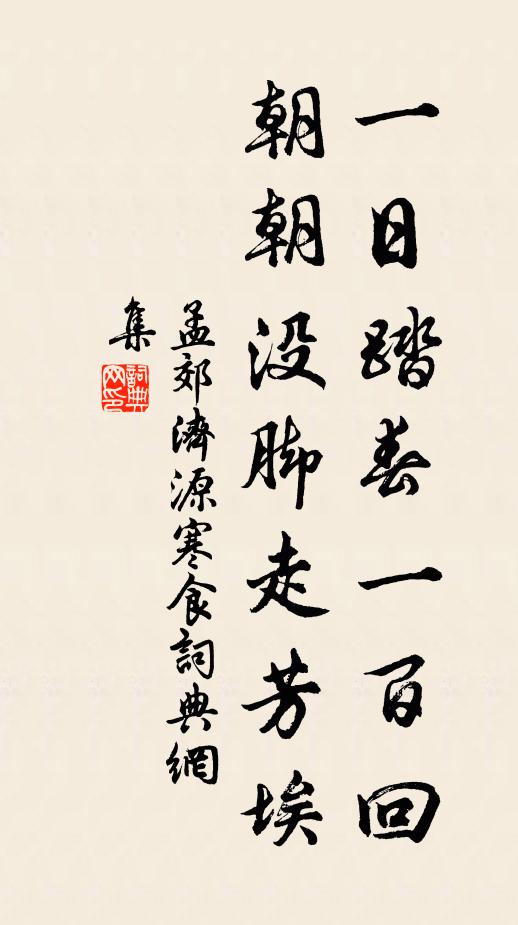 一日踏春一百回
朝朝没脚走芳埃
孟郊濟源寒食詞典網
集
詞典
网印